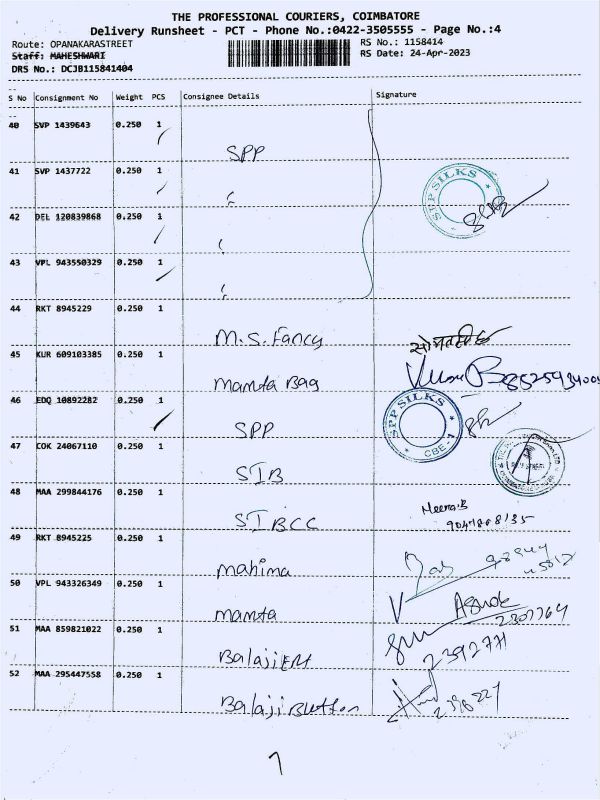 THE PROFESSIONAL COURIERS, COIMBATORE
Delivery Runsheet - PCT - Phone No.:0422-3505555 - Page No.:4
Route: OPANAKARASTREET RS No.: 1158414
Staff: MAHESHWARI RS Date: 24-Apr-2023
DRS No.: DCJB115841404
S No Consignment No Weight PCS Consignee Details Signature
40 SVP 1439643 0.250 1
SPP
41 SVP 1437722 0.250 1
SPP SILKS
42 DEL 120839868 0.250 1
43 VPL 943550329 0.250 1
44 RKT 8945229 0.250 1
M.S. Fancy
45 KUR 609103385 0.250 1
Mamta Bag
46 EDQ 10892282 0.250 1
SPP SPP SILKS CBE-1
47 COK 24067110 0.250 1
SIB
48 MAA 299844176 0.250 1
SIBCC Meena.B
49 RKT 8945225 0.250 1
Mahima
50 VPL 943326349 0.250 1
Mamta Ashok
2307764
51 MAA 859821022 0.250 1
Balaji EM 2392771
52 MAA 295447558 0.250 1
Balaji Button
7